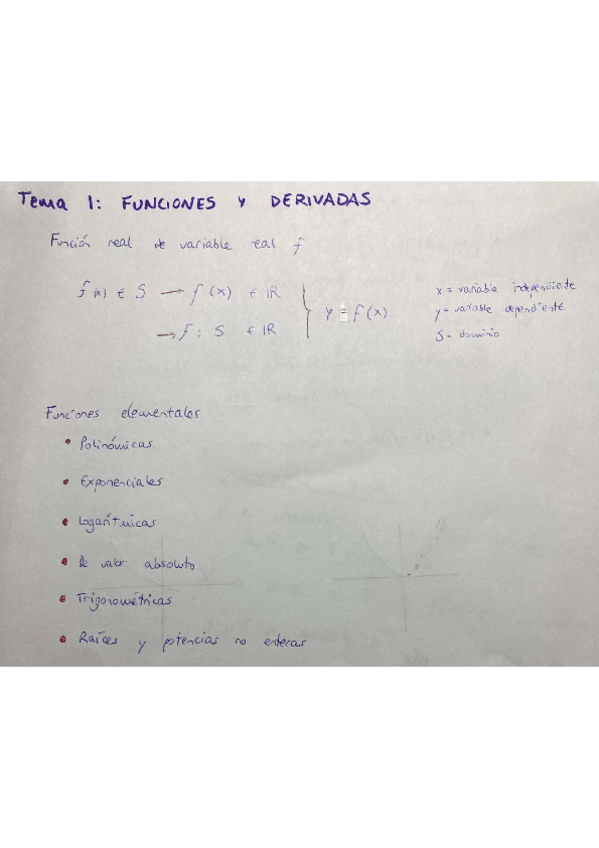 Tema 1: FUNCIONES Y DERIVADAS
Función real de variable real f
f(x) ∈ S → f(x) ∈ IR
→ f: S ∈ IR
y = f(x)
x = variable independiente
y = variable dependiente
S = dominio
Funciones elementales
• Polinómicas
• Exponenciales
• Logarítmicas
• De valor absoluto
• Trigonométricas
• Raíces y potencias no enteras